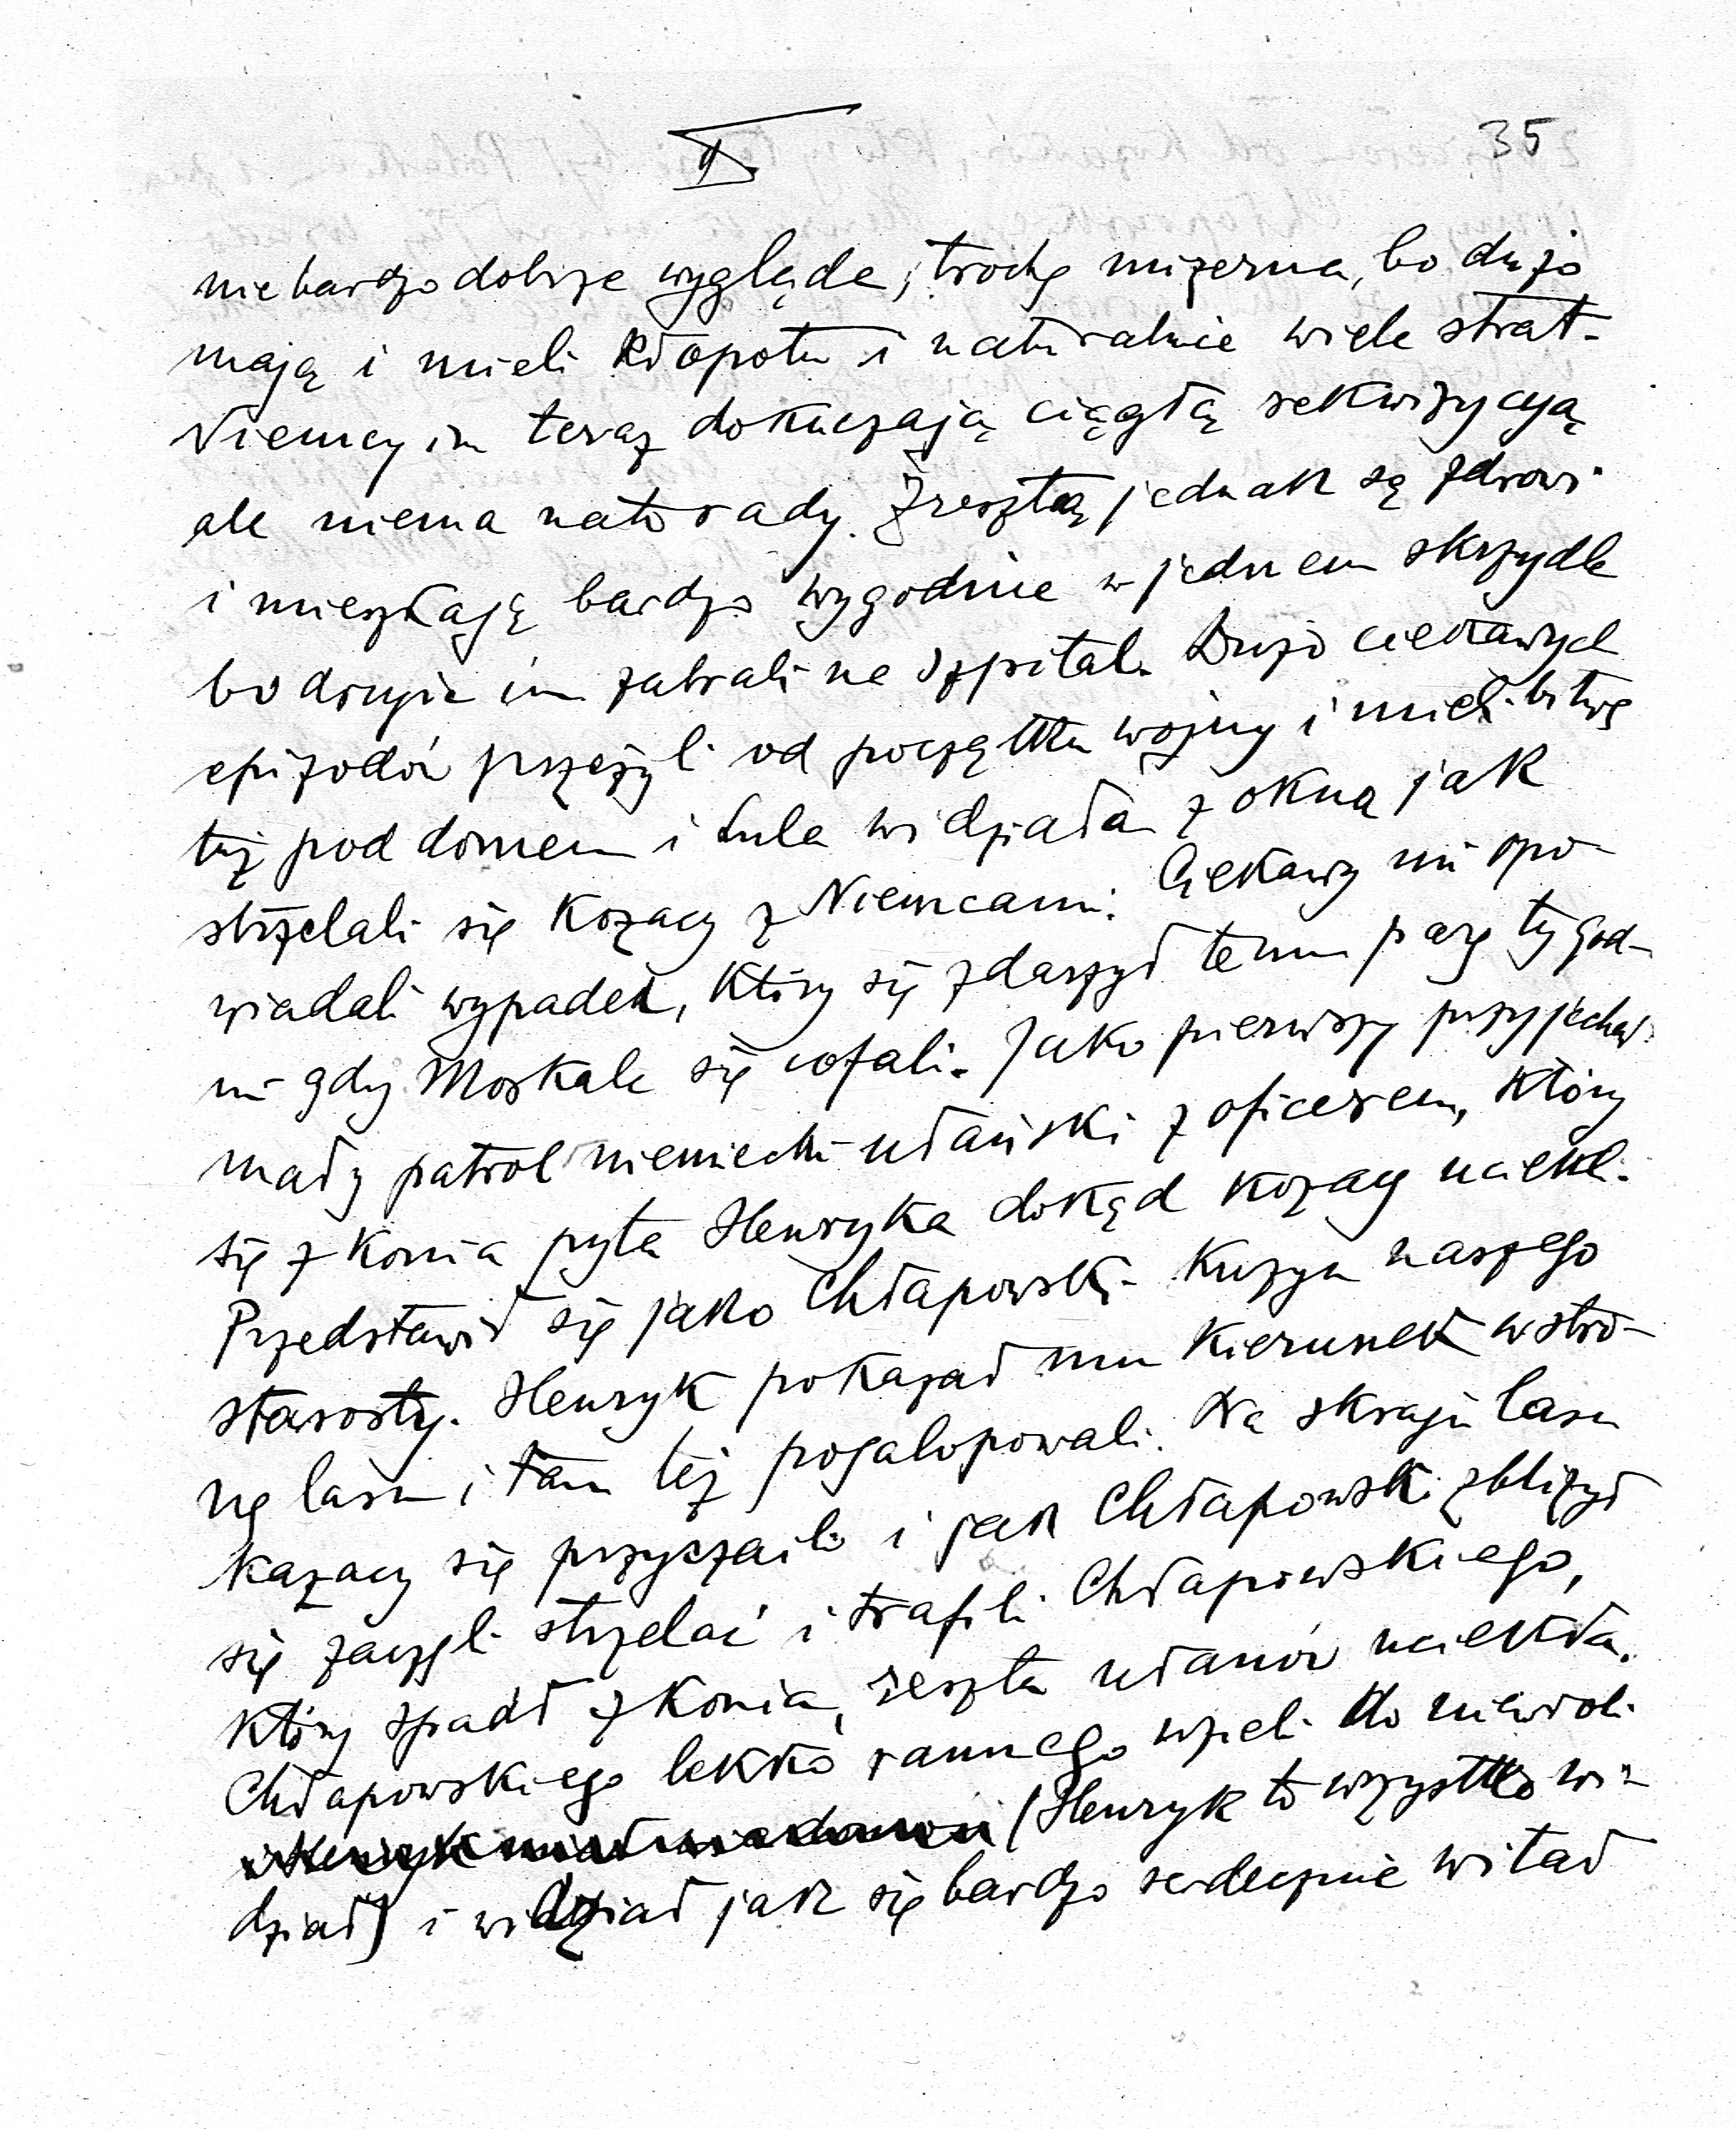 II
35
niebardzo dobrze wygląda, trochę mizerna, bo dużo
mają i mieli kłopotu i naturalnie wiele strat.
Niemcy im teraz dokuczają ciągłą rekwizycją
ale niema nato rady. Zresztą jednak są zdrowi
i mieszkają bardzo wygodnie w jednem skrzydle
bo drugie im zabrali na szpital. Dużo ciekawych
epizodów przeżyli od początku wojny i mieli bitwę
tuż pod domem i Lula widziała z okna jak
strzelali się kozacy z Niemcami. Ciekawy mi opo-
wiadali wypadek, który się zdarzył temu parę tygod-
ni gdy Moskale się cofali. Jako pierwszy przyjechał
mały patrol niemiecki-ułański z oficerem, który
się z konia pyta Henryka dokąd kozacy uciekli.
Przedstawił się jako Chłapowski. Kuzyn naszego
starosty. Henryk pokazał mu kierunek w stro-
nę lasu i tam też pogalopowali. Na skraju lasu
kazacy się przyczaili i jak Chłapowski zbliżył
się zaczęli strzelać i trafili Chłapowskiego,
który spadł z konia, reszta ułanów uciekła.
Chłapowskiego lekko rannego wzieli do niewoli
(Henryk to wszystko wi-
dział) i widział jak się bardzo serdecznie witał